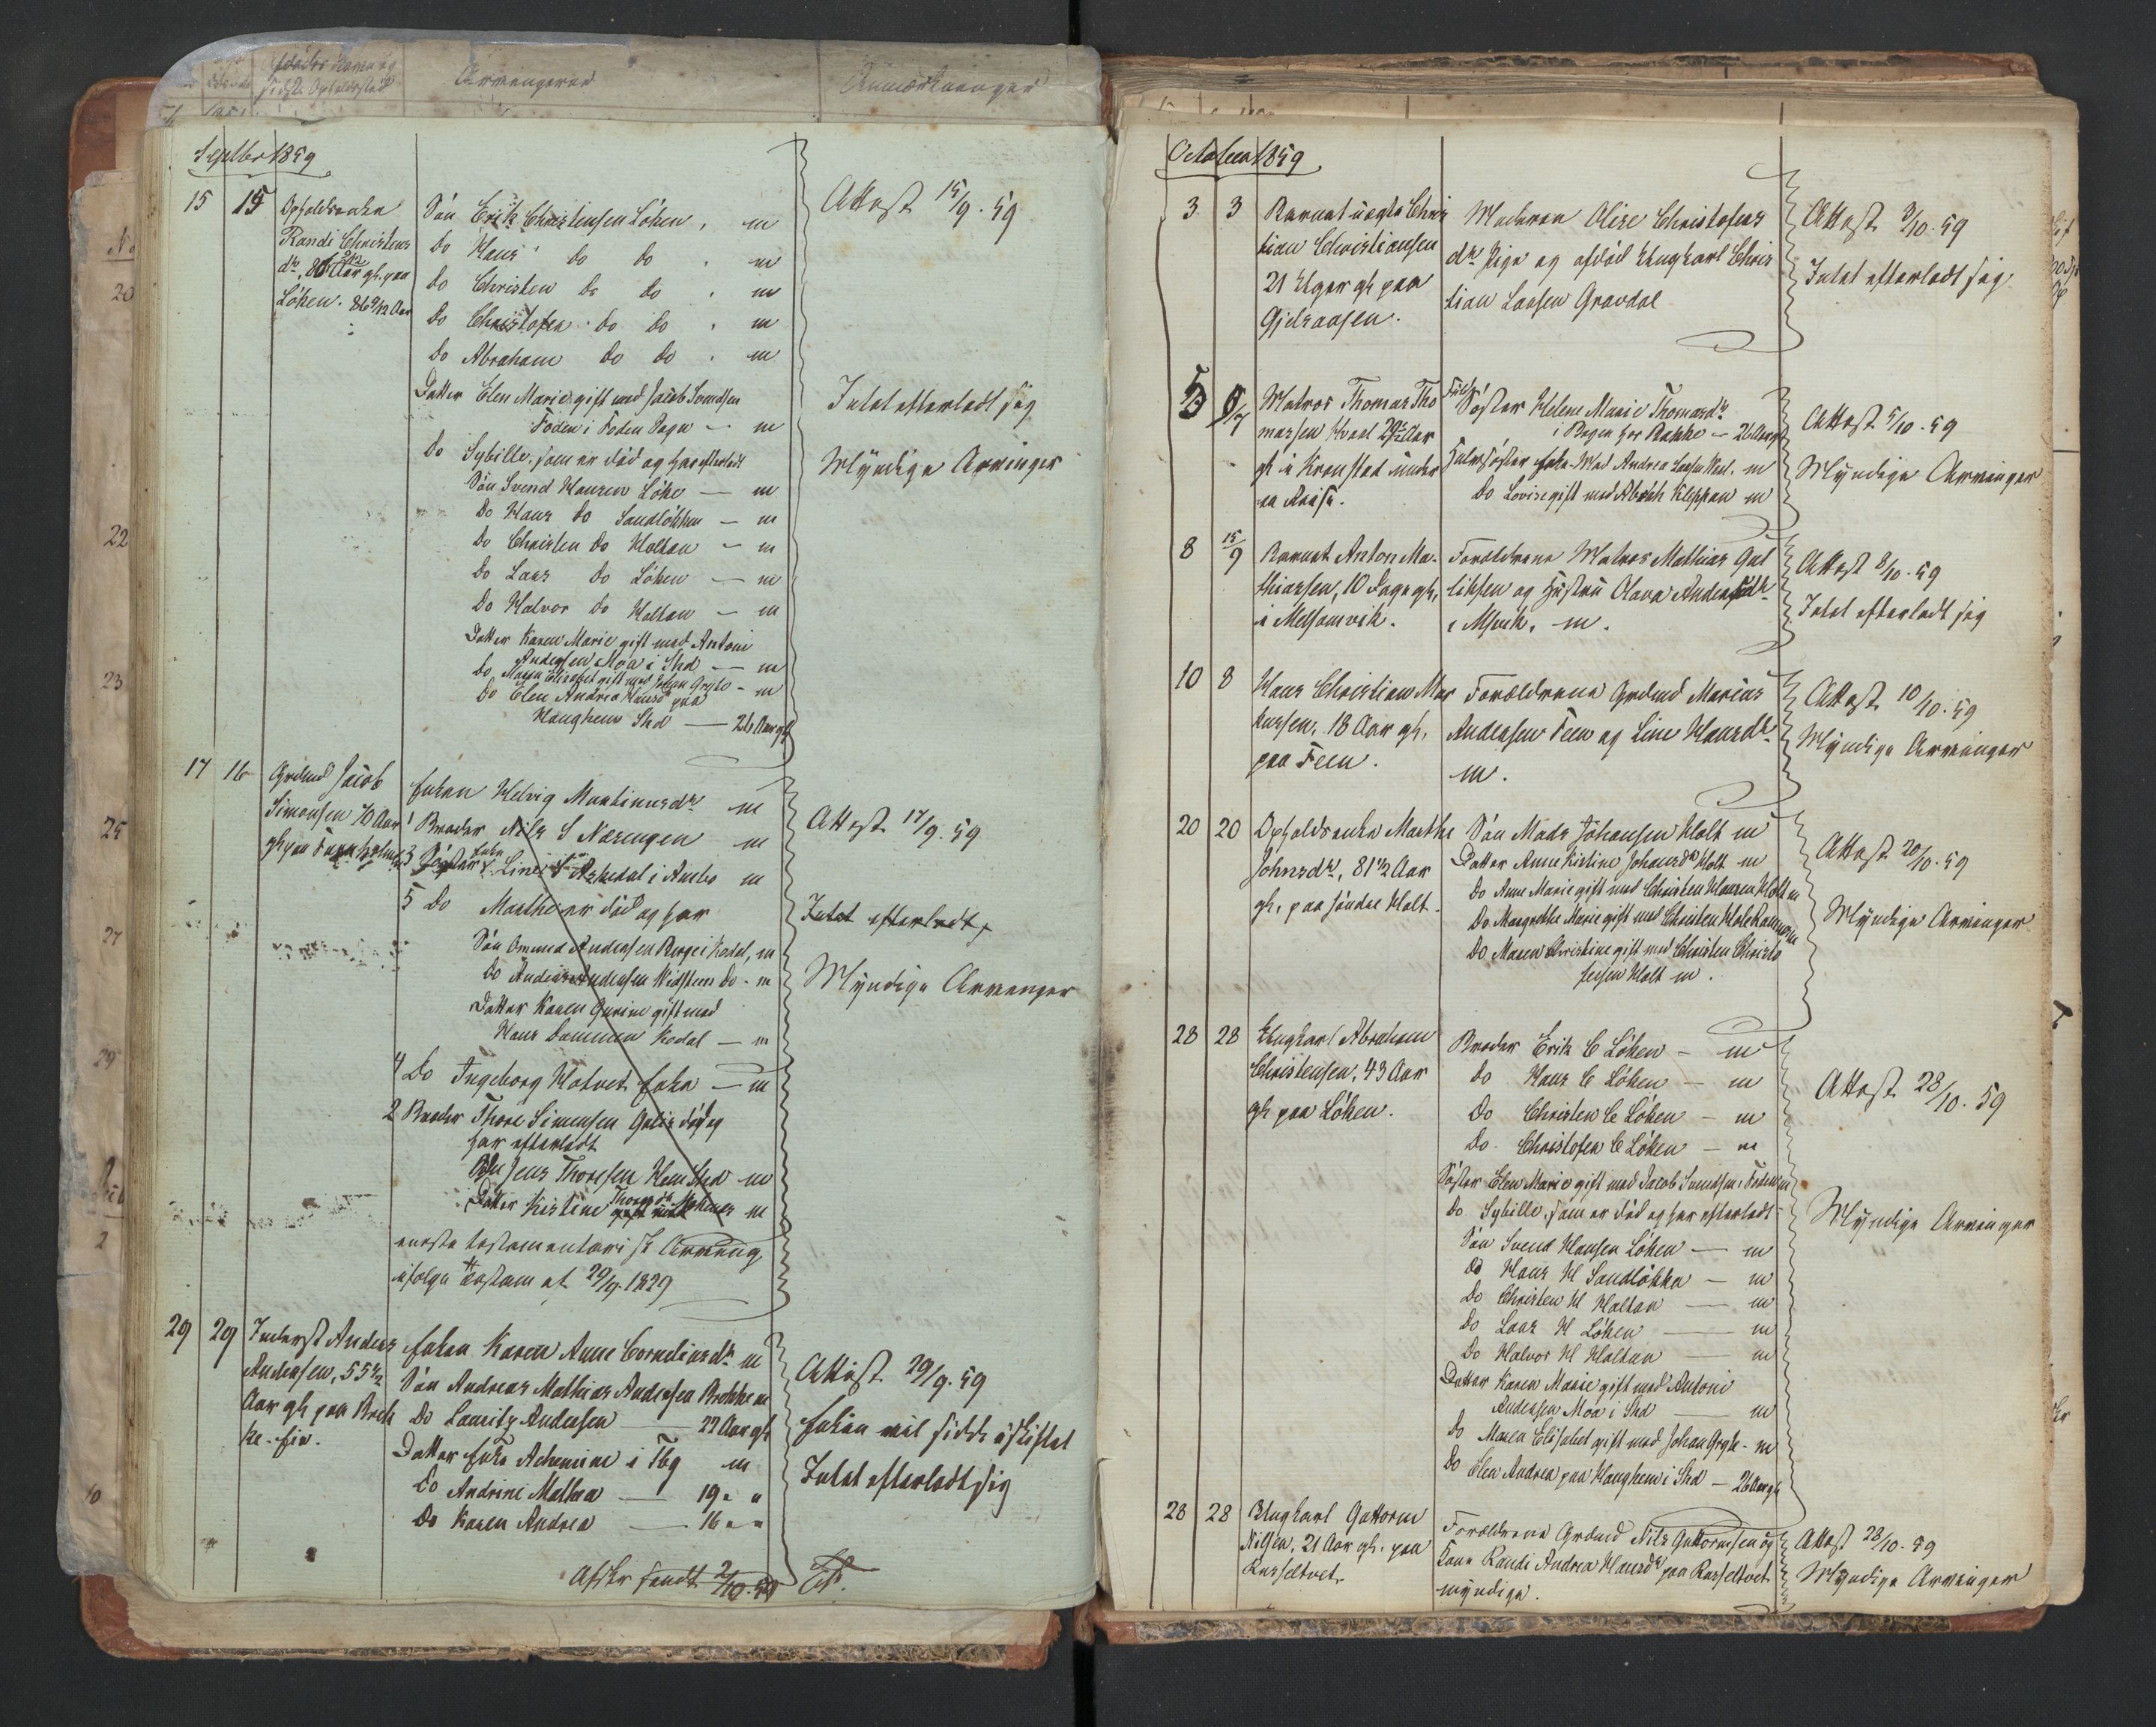 Afdødes Navn og
sidste Opholdssted
Arvingerne
Anmærkninger
Septbr 1859
15 15 Opholdsenke
Randi Christens
dr, 86 Aar gl. paa
Løken. 86 9/12 Aar
Søn Erik Christensen Løken, m
Do Hans do do, m
Do Christen do do, m
Do Christofer do do, m
Do Abraham do do, m
Datter Elen Marie gift med Jacob Svendsen
Foden i Foden Sogn — m
Do Sybille, som er død og har efterladt
Søn Svend Hansen Løke — m
Do Hans do Sandløkken — m
Do Christen do Holtan — m
Do Lars do Løken — m
Do Halvor do Holtan — m
Datter Karen Marie gift med Antoni
Andersen Moa i Shd — m
Do Maren Elisabet gift med Johan Gryte — m
Do Elen Andrea Hansdr paa
Haughem Shd — 26 Aar gl
Attest 15/9. 59
Intet efterladt sig
Myndige Arvinger
17 16 Grdmd Jacob
Simonsen 70 Aar
gl paa
Enken Helvig Martinusdr m
1 Broder Nils S Nærengen m
3 Søster Enke Line Askedal i Anebo m
5 Do Marthe er død og har
Søn Omund Andersen Berge i Kodal, m
Do Anders Andersen Hidsteen do - m
Datter Karen Gurine gift med
Hans Dammen Kodal — m
4 Do Ingeborg Holvet Enke — m
2 Broder Thore Simensen Galis død og
har efterladt
Søn Jens Thoresen Hem Shd m
Datter Kirstine Thoresdr gift med m
eneste testamentariske Arving,
ifølge Testam at 29/9. 1829
Attest 17/9. 59
Intet efterladt
Myndige Arvinger
29 29 Inderst Anders
Andersen, 55 1/2
Aar gl paa Brek
ke-eie.
Enken Karen Anne Corneliusdr m
Søn Andreas Mathias Andersen Brekke m
Do Lauritz Andersen — 22 Aar gl
Datter Enke Athemine i Tbg m
Do Andrine Mathea — 19 " "
Do Karen Andrea — 16 " "
Attest 29/9. 59
Enken vil sidde uskiftet
Intet efterladt sig
Afskr sendt 2/10. 59
October 1859
3 3 Barnet uægte Chris
tian Christiansen
21 Uger gl paa
Gjelsaasen.
Moderen Olise Christofers
dr Pige og afdød Ungkarl Chris
tian Larsen Gravdal
Attest 3/10. 59
Intet efterladt sig
5 Matros Thomas Tho
massen Hvaal 29 1/2 Aar
gl i Kronstad under
en Reise.
Fuld Søster Helene Marie Thomasdr
i Bogen hos Bakke — 26 Aar gl
Halvsøster Enke-Mad Andrea Larsen Vest. m
Do Lovise gift med Abrah Kleppan m
Attest 5/10. 59
Myndige Arvinger
8 15/9 Barnet Anton Ma-
thiassen, 10 Dage gl,
i Melsomvik.
Forældrene Matros Mathias Gul
liksen og Hustru Olava Andersdr
i Msvik. m.
Attest 8/10. 59
Intet efterladt sig
10 8 Hans Christian Mar
kussen, 18 Aar gl,
paa Feen.
Forældrene Grdmd Marius
Andersen Feen og Line Hansdr
m.
Attest 10/10. 59
Myndige Arvinger
20 20 Opholdsenke Marthe
Johnsdr, 81 1/2 Aar
gl, paa søndre Holt.
Søn Mads Johansen Holt m
Datter Anne Kirstine Johansdr Holt m
Do Anne Marie gift med Christen Hansen Holt m
Do Margrethe Marie gift med Christen Hole Ramnæs m
Do Maren Christine gift med Christen Christo
fersen Holt m.
Attest 20/10. 59
Myndige Arvinger
28 28 Ungkarl Abraham
Christensen, 43 Aar
gl paa Løken.
Broder Erik C Løken — m
Do Hans C Løken — m
Do Christen C Løken — m
Do Christofer C Løken — m
Søster Elen Marie gift med Jacob Svendsen i Foden m
Do Sybille, som er død og har efterladt
Søn Svend Hansen Løken — m
Do Hans H Sandløkka — m
Do Christen H Holtan — m
Do Lars H Løken — m
Do Halvor H Holtan — m
Datter Karen Marie gift med Antoni
Andersen Moa i Shd — m
Do Maren Elisabet gift med Johan Gryte — m
Do Elen Andrea paa Haughem i Shd — 26 Aar gl
Attest 28/10. 59
Myndige Arvinger
28 28 Ungkarl Guttorm
Nilsen, 21 Aar gl. paa
Russeltvet
Forældrene Grdmd Nils Guttormsen og
Kone Randi Andrea Hansdr paa Russeltvet
myndige.
Attest 28/10. 59
Myndige Arvinger